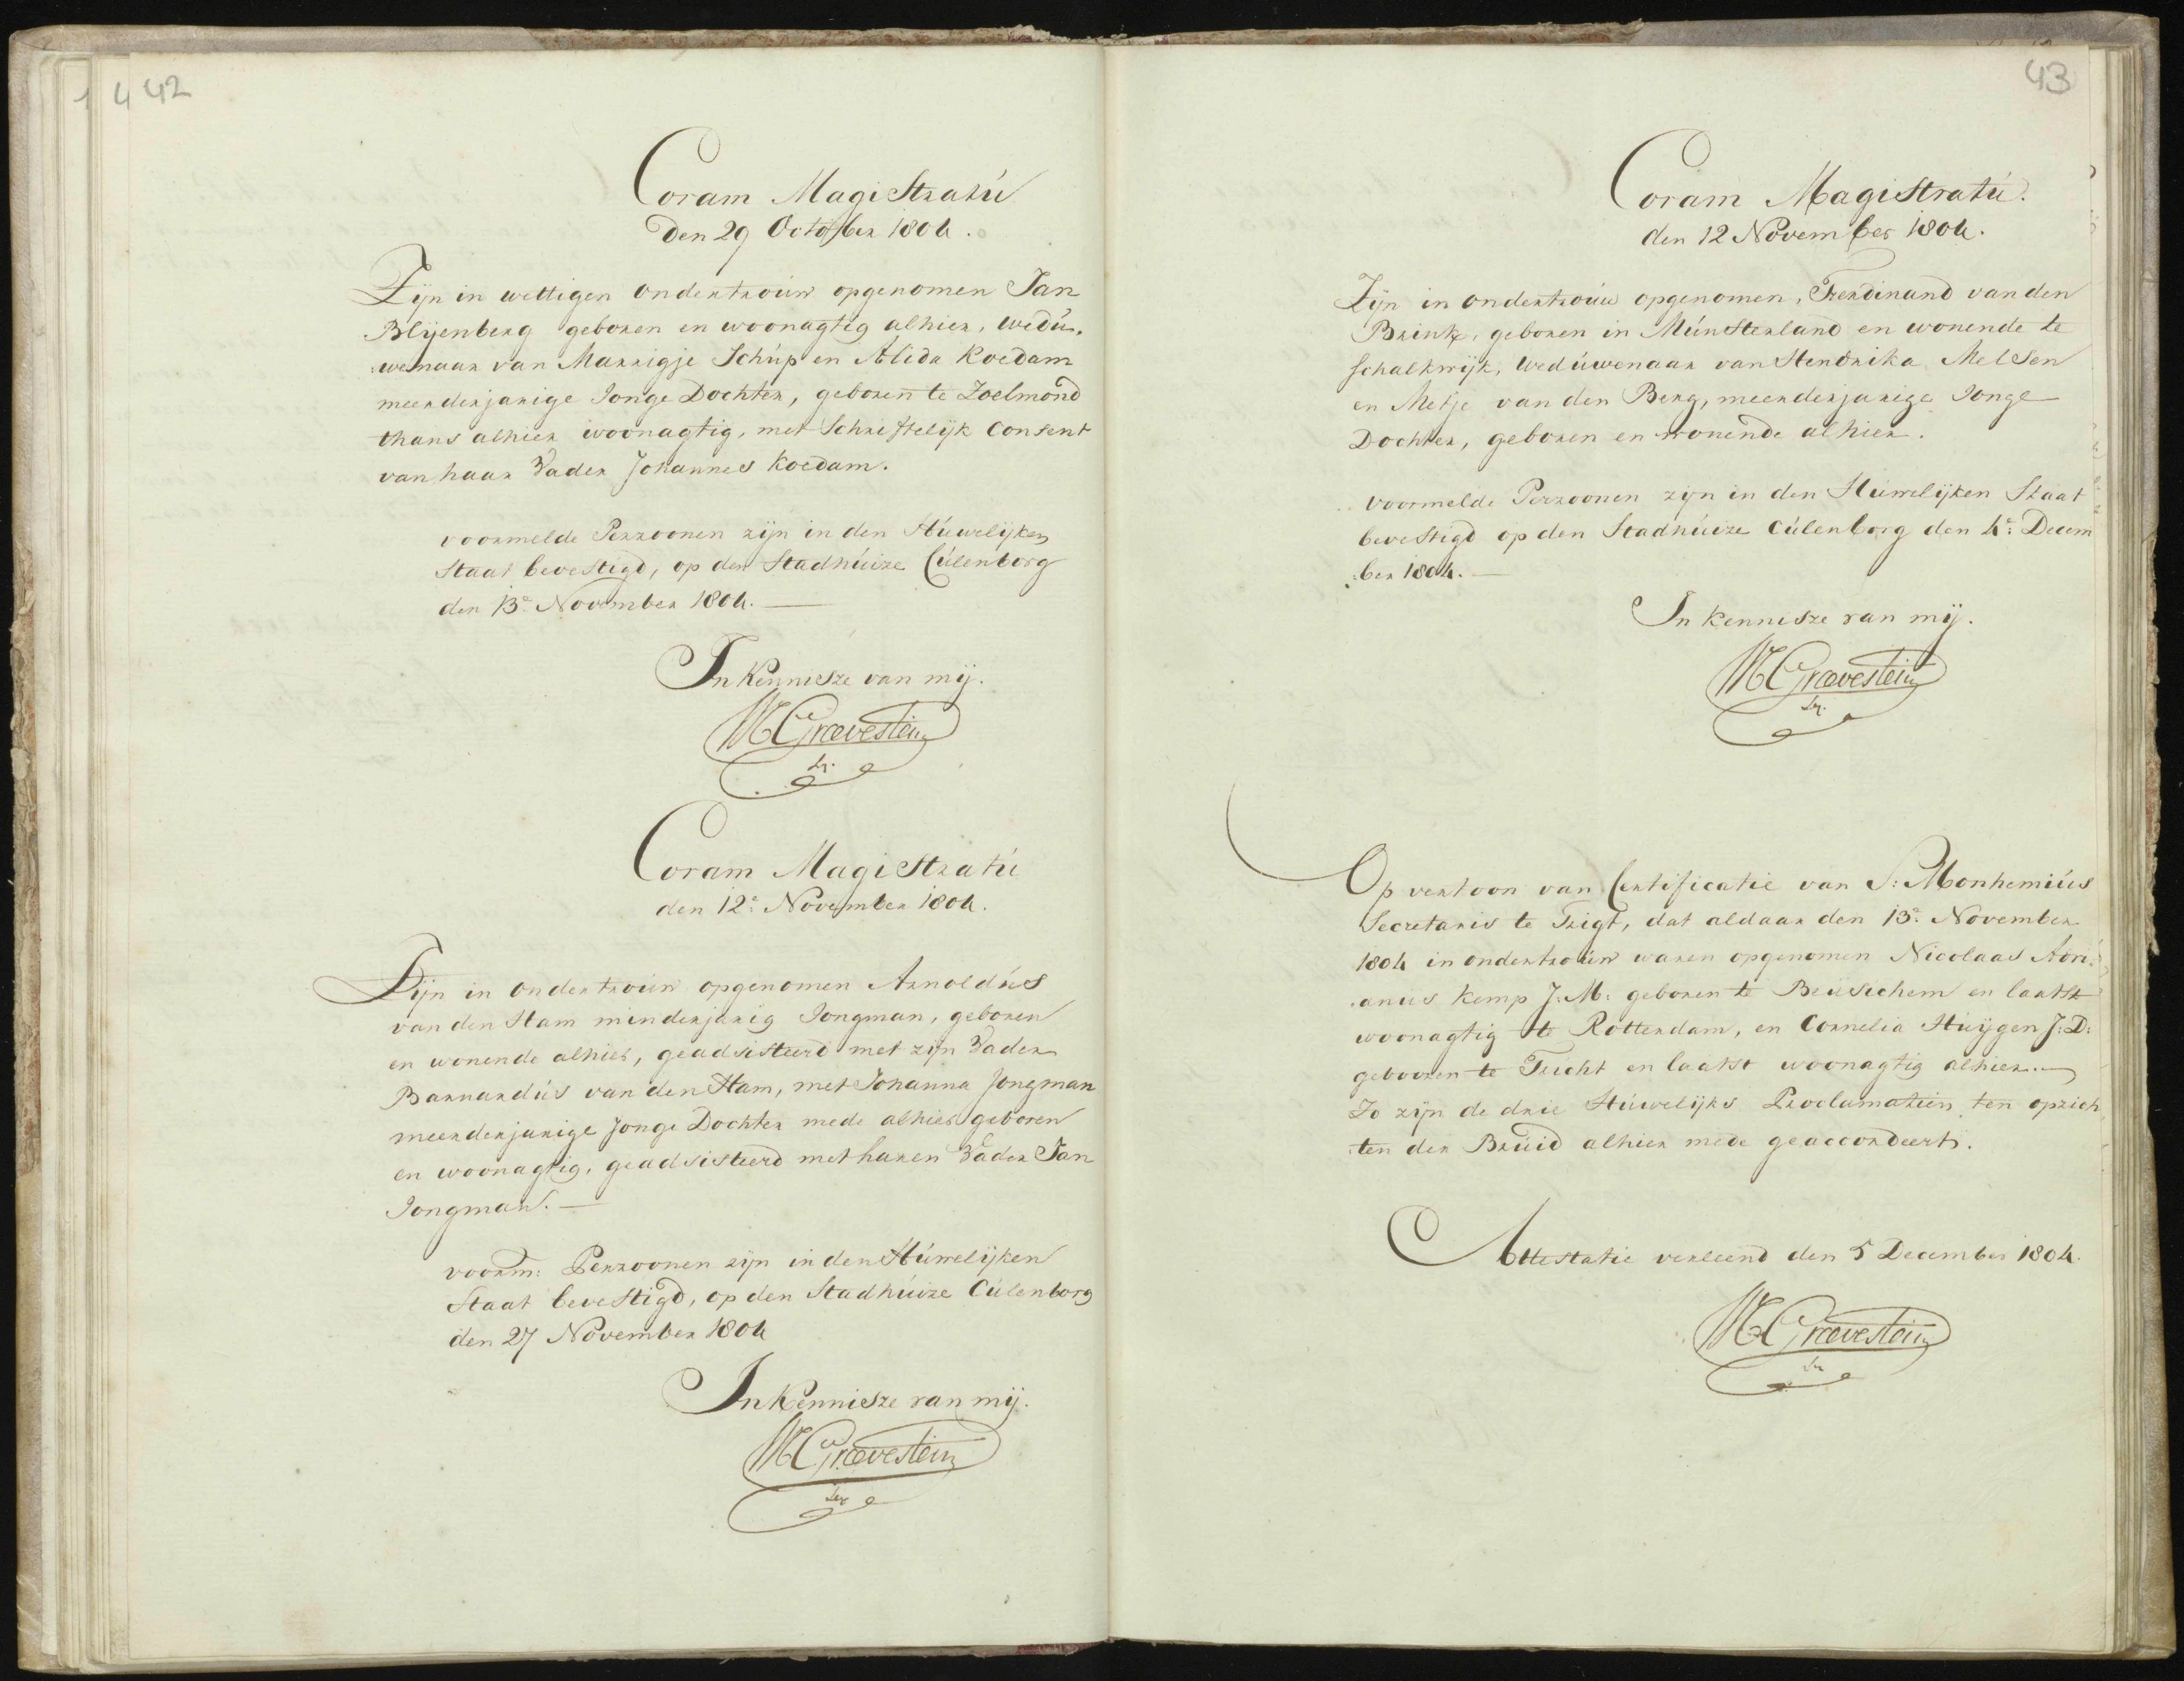 1 4 42
Coram Magistratú
Den 29 October 1804.
Zijn in wettigen ondertrouw opgenomen Jan
Blijenberg geboren en woonagtig alhier, wedu,
:wenaar van Marrigje Schúp en Alida Koedam
meerderjarige Jonge Dochter, geboren te Zoelmond
thans alhier woonagtig, met Schriftelijk Consent
van haar Vader Johannes Koedam.
voormelde Perzoonen zijn in den Húwelijken
Staat bevestigd, op den Stadhúize Cúlenborg
den 13e November 1804.
In Kennisze van mij.
W Grævestein
Sr.
Coram Magistratú
den 12e November 1804.
Zijn in ondertrouw opgenomen Arnoldús
van den Ham minderjarig Jongman, geboren
en wonende alhier, geadsisteerd met zijn Vader
Barnardús van den Ham, met Johanna Jongman
meerderjarige Jonge Dochter mede alhier geboren
en woonagtig, geadsisteerd met haren Vader Jan
Jongman.
voorm: Perzoonen zijn in den Húwelijken
Staat bevestigd, op den Stadhúize Cúlenborg
den 27 November 1804
In Kennisze van mij.
W Grævestein
Secr
43
Coram Magistratú.
den 12 November 1804.
Zijn in ondertroúw opgenomen, Ferdinand van den
Brink, geboren in Múnsterland en wonende te
Schalkwijk, Wedúwenaar van Hendrika Melsen
en Metje van den Berg, meerderjarige Jonge
Dochter, geboren en wonende alhier.
voormelde Perzoonen zijn in den Húwelijken Staat
bevestigd op den Stadhúize Cúlenborg den 4e: Decem
:ber 1804.
In kennisze van mij.
W Grævestein
Sr.
Op vertoon van Certificatie van S: Monhemiús
Secretaris te Trigt, dat aldaar den 13e. November
1804 in ondertroúw waren opgenomen Nicolaas Adri:
:anús Kemp J:M: geboren te Beúsichem en laatst
woonagtig te Rotterdam, en Cornelia Húijgen J:D:
gebooren te Tricht en laatst woonagtig alhier.
Zo zijn de drie Húwelijks Proclamatien ten opzich
:ten der Brúid alhier mede geaccordeert.
Attestatie verleend den 5 December 1804.
W Grævestein
Sr